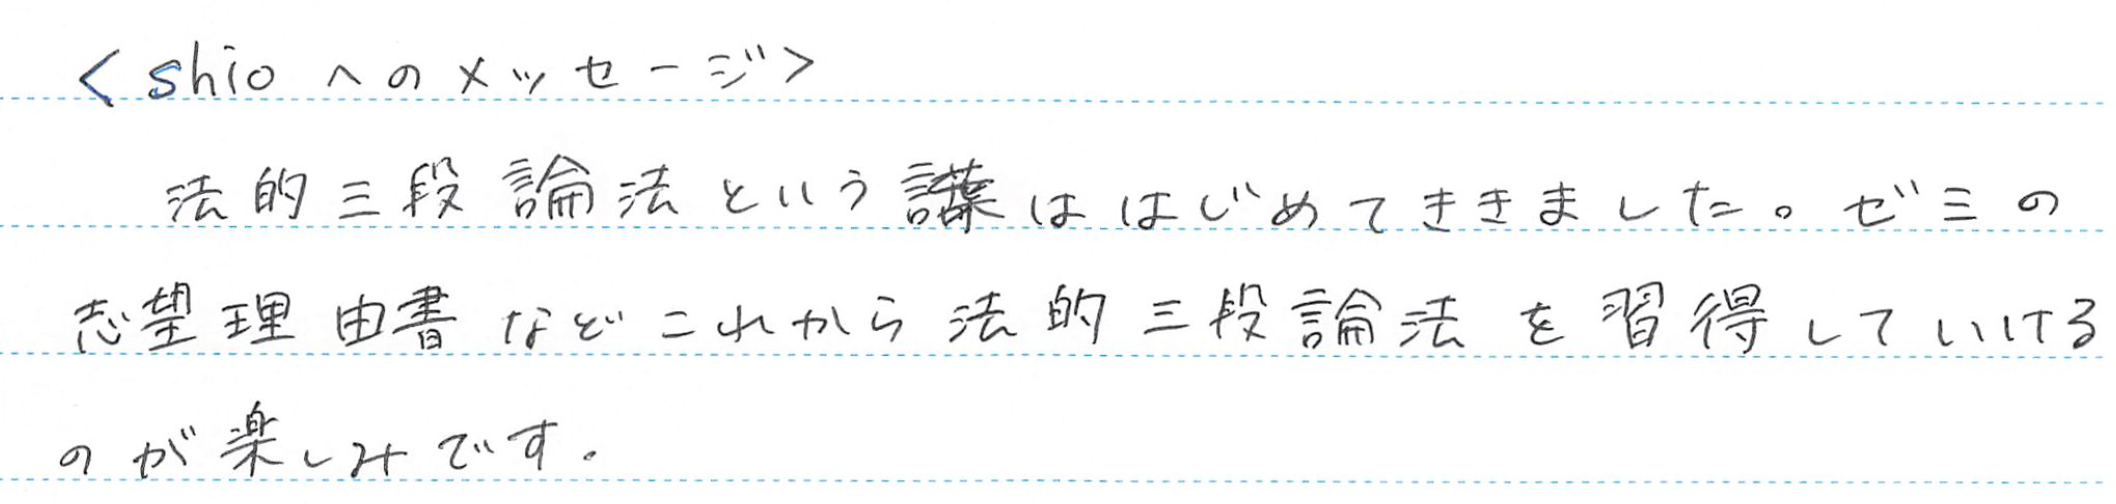 <shioへのメッセージ>
法的三段論法という は はじめてききました。ゼミの
志望理由書などこれから法的三段論法を習得していける
のが楽しみです。